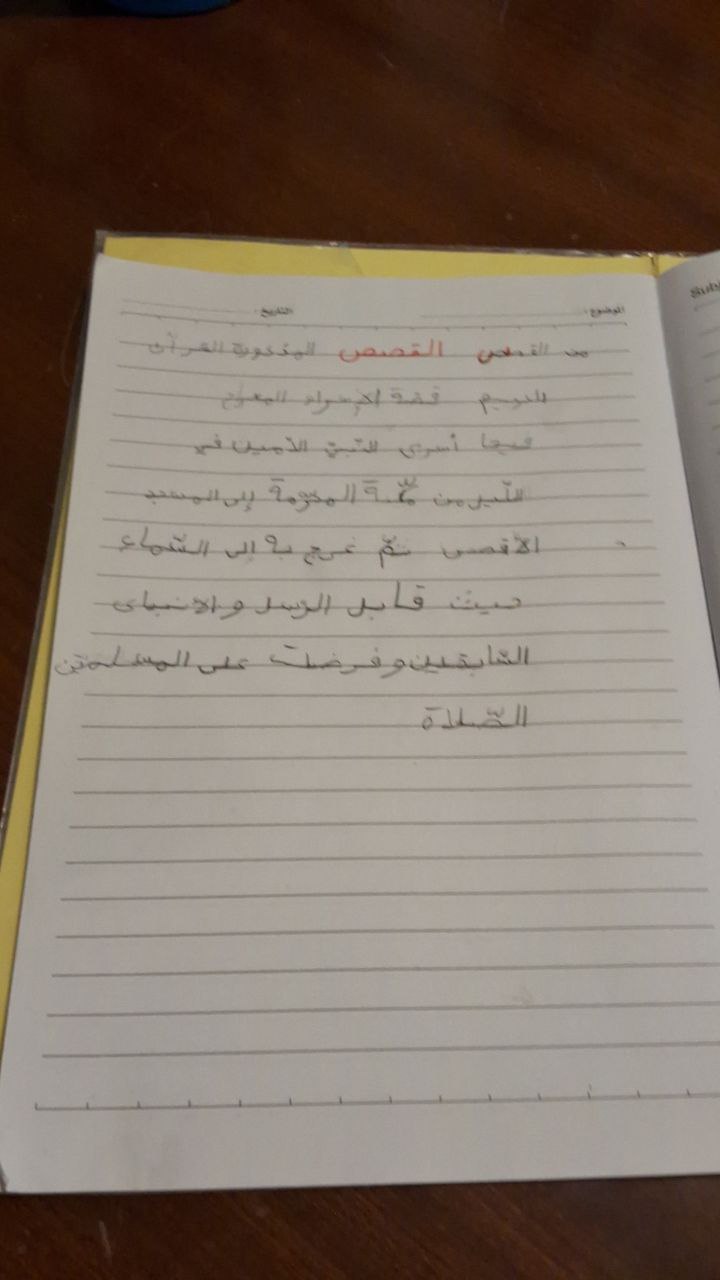 الموضوع: التاريخ:
Subj
من القصص القصص المذكورة القرآن
الكريم قصة الإسراء المعراج
فيها أسرى النبيّ الأمين في
اللّيل من مكّة المكرّمة إلى المسجد
الأقصى ثمّ عرج به إلى السّماء
حيث قابل الرسل والانبياى
السّابقين وفرضت على المسلمين
الصّلاة